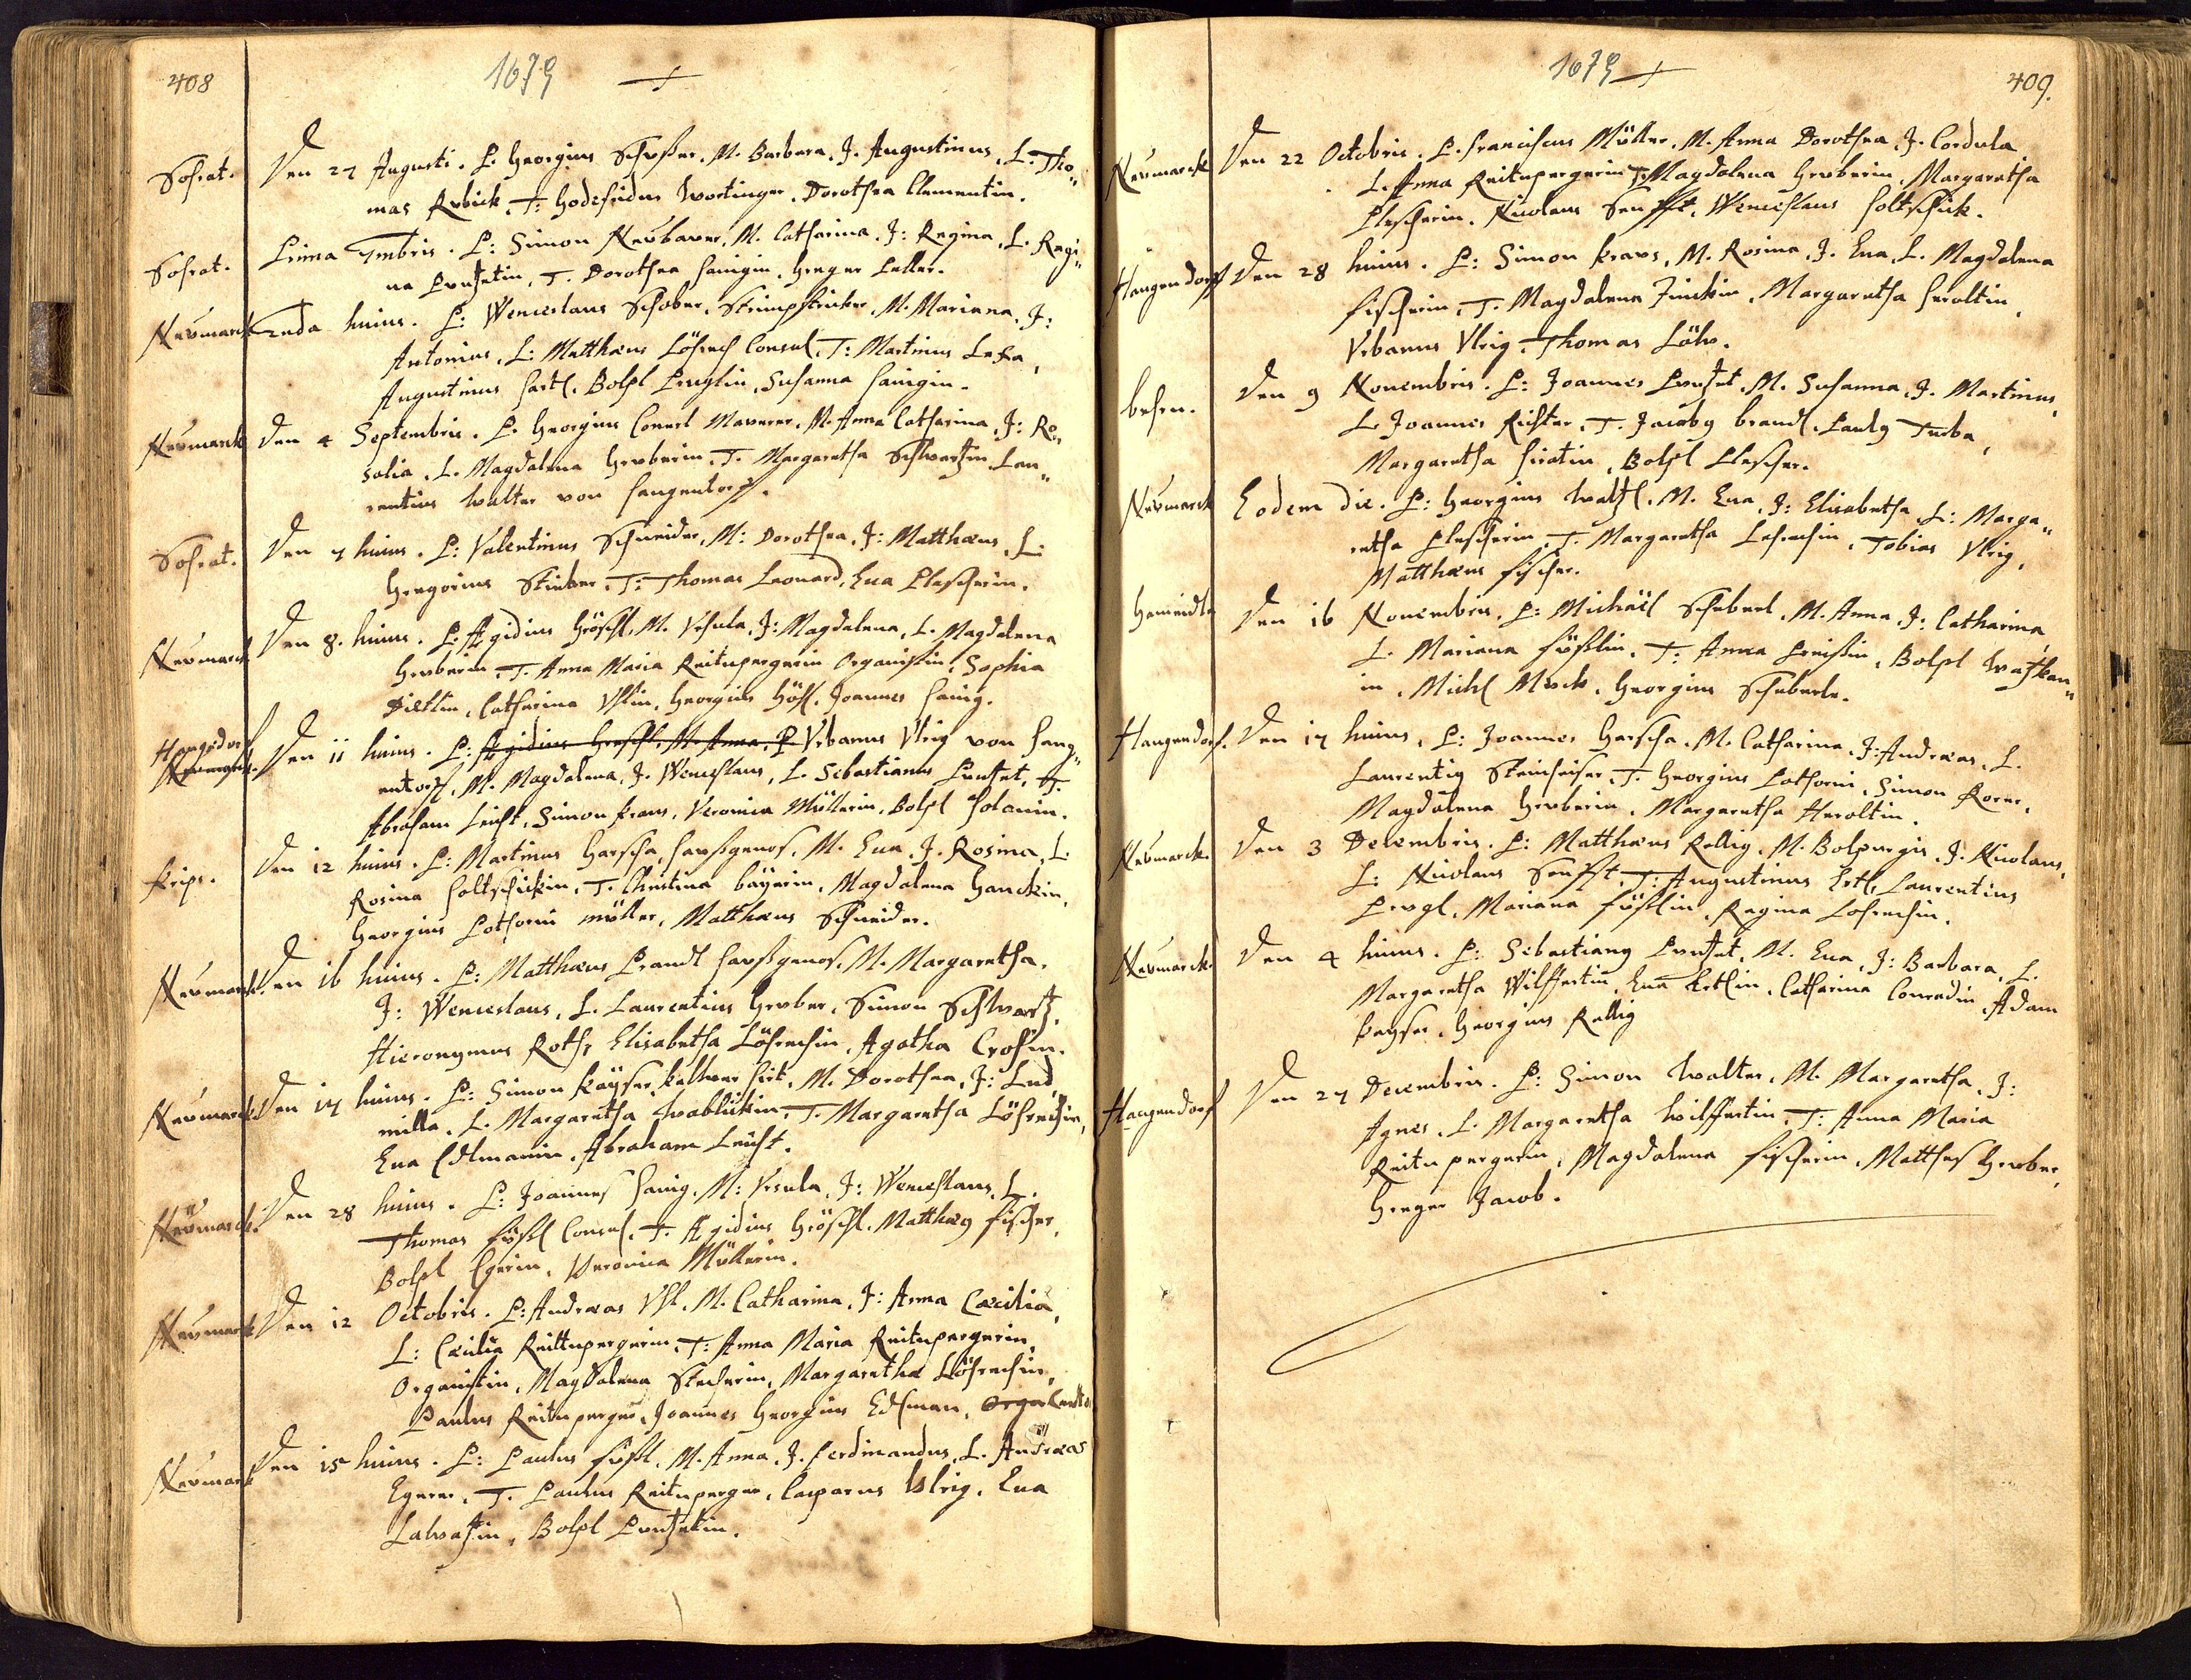 408
1679
Sohrat. Den 27 Augusti. P. Georgius Schußer, M. Barbara, J. Augustinus, L. Tho„
mas Rubick, T: Godefridus Wortinger, Dorothea Clementin.
Sohrat. Prima 7mbris. P: Simon Neubauer, M. Catharina, J: Regina, L. Regi„
na T. Dorothea Hainigin, Greger
Neumarck 2nda huius. P: Wenceslaus Schober, Strimpfstricker, M. Mariana, J:
Antonius, L: Matthæus Löhrech Consul, T: Martinus
Augustinus Hartl, Bolpl Susanna Hainigin.
Neumarck Den 4 Septembris. P. Georgius Maurer, M. Anna Catharina, J: Ro„
salia, L. Magdalena Gruberin, T. Margaretha Schwartzin, Lau„
rentius Walter von Hangendorf.
Sohrat. Den 7 huius. P: Valentinus Schneider, M: Dorothea, J: Matthæus, L:
Gregorius T: Thomas Leonard, Eua Plescherin.
Neumarck Den 8. huius. P. Ægidius Gröschl, M. Vrsula, J: Magdalena, L. Magdalena
Gruberin, T. Anna Maria Reitnpergerin Organistin, Sophia
Dietlin, Catharina Vhlin, Georgius Joannes Hainig.
Hangedorf Neumarck. Den 11 huius. P: Ægidius Greschl, M. Anna, P Vrbanus Vlrig von Hang„
entorf, M. Magdalena, J. Wenceslaus, L. Sebastianus T.
Abraham Leicht, Simon Kraus, Veronica Müllerin, Bolpl
Krips. Den 12 huius. P: Martinus Garscha, Haußgenos, M. Eua, J. Rosina, L.
Rosina Holtschickin, T. Christina Bäyerin, Magdalena Hanckin,
Georgius Müller, Matthæus Schneider.
Neumarck. Den 16 huius. P: Matthæus Prandl Haußgenos, M. Margaretha,
J: Wenceslaus, L. Laurentius Gruber, Simon Schwartz,
Hieronymus Roth, Elisabetha Löhrechin, Agatha
Neumarck Den 17 huius. P: Simon Käyser, M. Dorothea, J: Lud„
milla, L. Margaretha T. Margaretha Löhrechin,
Eua Edlmanin, Abraham Leicht.
Neumarck. Den 28 huius. P: Joannes Hainig, M: Vrsula, J: Wenceslaus, L.
Thomas Füßl Consul, T. Ægidius Gröschl, Matthæg Fischer,
Bolpl Egerin, Veronica Müllerin.
Neumarck Den 12 Octobris. P: Andreas Vhl, M. Catharina, J: Anna Cæcilia,
L: Cæcilia Reittnpergerin, T: Anna Maria Reitnpergerin,
Organistin, Magdalena Margaretha Löhrechin,
Paulus Reitnperger, Joannes Georgius Edlman,
Neumarck Den 15 huius. P: Paulus Füßl, M. Anna, J. Ferdinandus, L. Andreas
Egerer, T. Paulus Reitnperger, Casparus Vlrig, Eua
Bolpl
1679
409.
Neumarck Den 22 Octobris. P. Franciscus Müller, M. Anna Dorothea, J. Cordula
L. Anna Reitnpergerin, T. Magdalena Gruberin, Margaretha
Plescherin, Nicolaus Senfft, Wenceslaus Holtschick.
Hangendorff Den 28 huius. P: Simon Kraus, M. Rosina, J. Eua, L. Magdalena
Fischerin, T. Magdalena Margaretha Heroltin,
Vrbanus Vlrig, Thomas Löw.
Den 9 Nouembris. P: Joannes M. Susanna, J. Martinus,
L. Joannes Richter, T. Jacobg Brandl, Paulg
Margaretha Bolpl Plescher.
Neumarck Eodem die. P: Georgius Waltzl, M. Eua, J: Elisabetha, L: Marga„
retha Plescherin, T. Margaretha Tobias Vlrig,
Matthæus Fischer.
Den 16 Nouembris. P: Michäel M. Anna, J: Catharina,
L. Mariana Füßlin, T: Anna Bolpl
in, Michl Georgius
Hangendorf. Den 17 huius. P: Joannes Garscha, M. Catharina, J: Andreas, L.
Laurentig T. Georgius Simon
Magdalena Gruberin, Margaretha Heroltin.
Neumarck. Den 3 Decembris. P: Matthæus Rellig, M. Bolpurgis, J. Nicolaus,
L: Nicolaus Senfft, T: Augustinus Laurentius
Mariana Füßlin, Regina Löhrechin.
Neumarck. Den 4 huius. P: Sebastiang M. Eua, J: Barbara, L.
Margaretha Wilffertin, Eua Catharina Conradin, Adam
Keyser, Georgius Rellig
Hangendorf Den 27 Decembris. P: Simon Walter, M. Margaretha, J:
Agnes, L. Margaretha Wilffertin, T: Anna Maria
Reitnpergerin, Magdalena Fischerin, Matthes Gruber,
Greger Jacob.